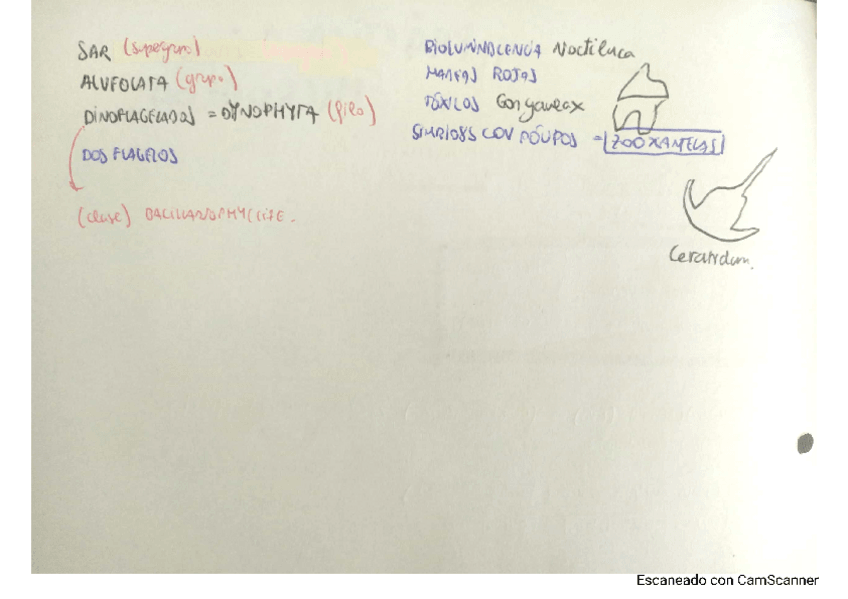 SAR (supergrupo)
ALVEOLATA (grupo)
DINOFLAGELADOS = DYNOPHYTA (filo)
DOS FLAGELOS
(clase) BACILLARIOPHYCEAE.
BIOLUMINISCENCIA Noctiluca
MAREAS ROJAS
TÓXICOS Gonyaulax
SIMBIOSIS CON PÓLIPOS = ZOOXANTELAS
Ceratidum.
Escaneado con CamScanner